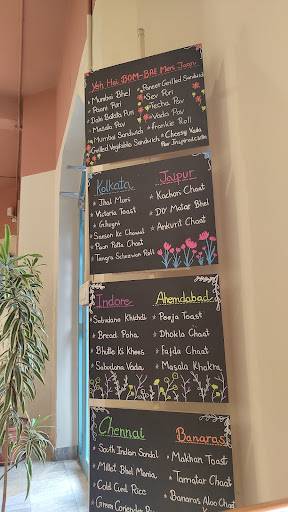 Yeh Hai BOM-BAE Meri Jaan
* Mumbai Bhel
* Paani Puri
* Dahi Batata Puri
* Masala Pav
* Mumbai Sandwich
* Grilled Vegetable Sandwich
* Paneer Grilled Sandwich
* Sev Puri
* Techa Pav
* Vada Pav
* Frankie Roll
* Cheesy Vada
Pav
Kolkata
* Jhal Muri
* Victoria Toast
* Ghugni
* Paan Patta Chaat
* Tangra Schezwan Roll
Jaipur
* Kachori Chaat
* DIY Matar Bhel
* Ankurit Chaat
Indore
* Sabudana Khichdi
* Bread Poha
* Bhutte Ki Khees
* Sabudana Vada
Ahemdabad
* Pooja Toast
* Dhokla Chaat
* Fafda Chaat
* Masala Khakra
Chennai
* South Indian Sandal
* Millet Bhel Mania
* Cold Curd Rice
* Green Coriander Rice
Banaras
* Makhan Toast
* Tamatar Chaat
* Banaras Aloo Chaat